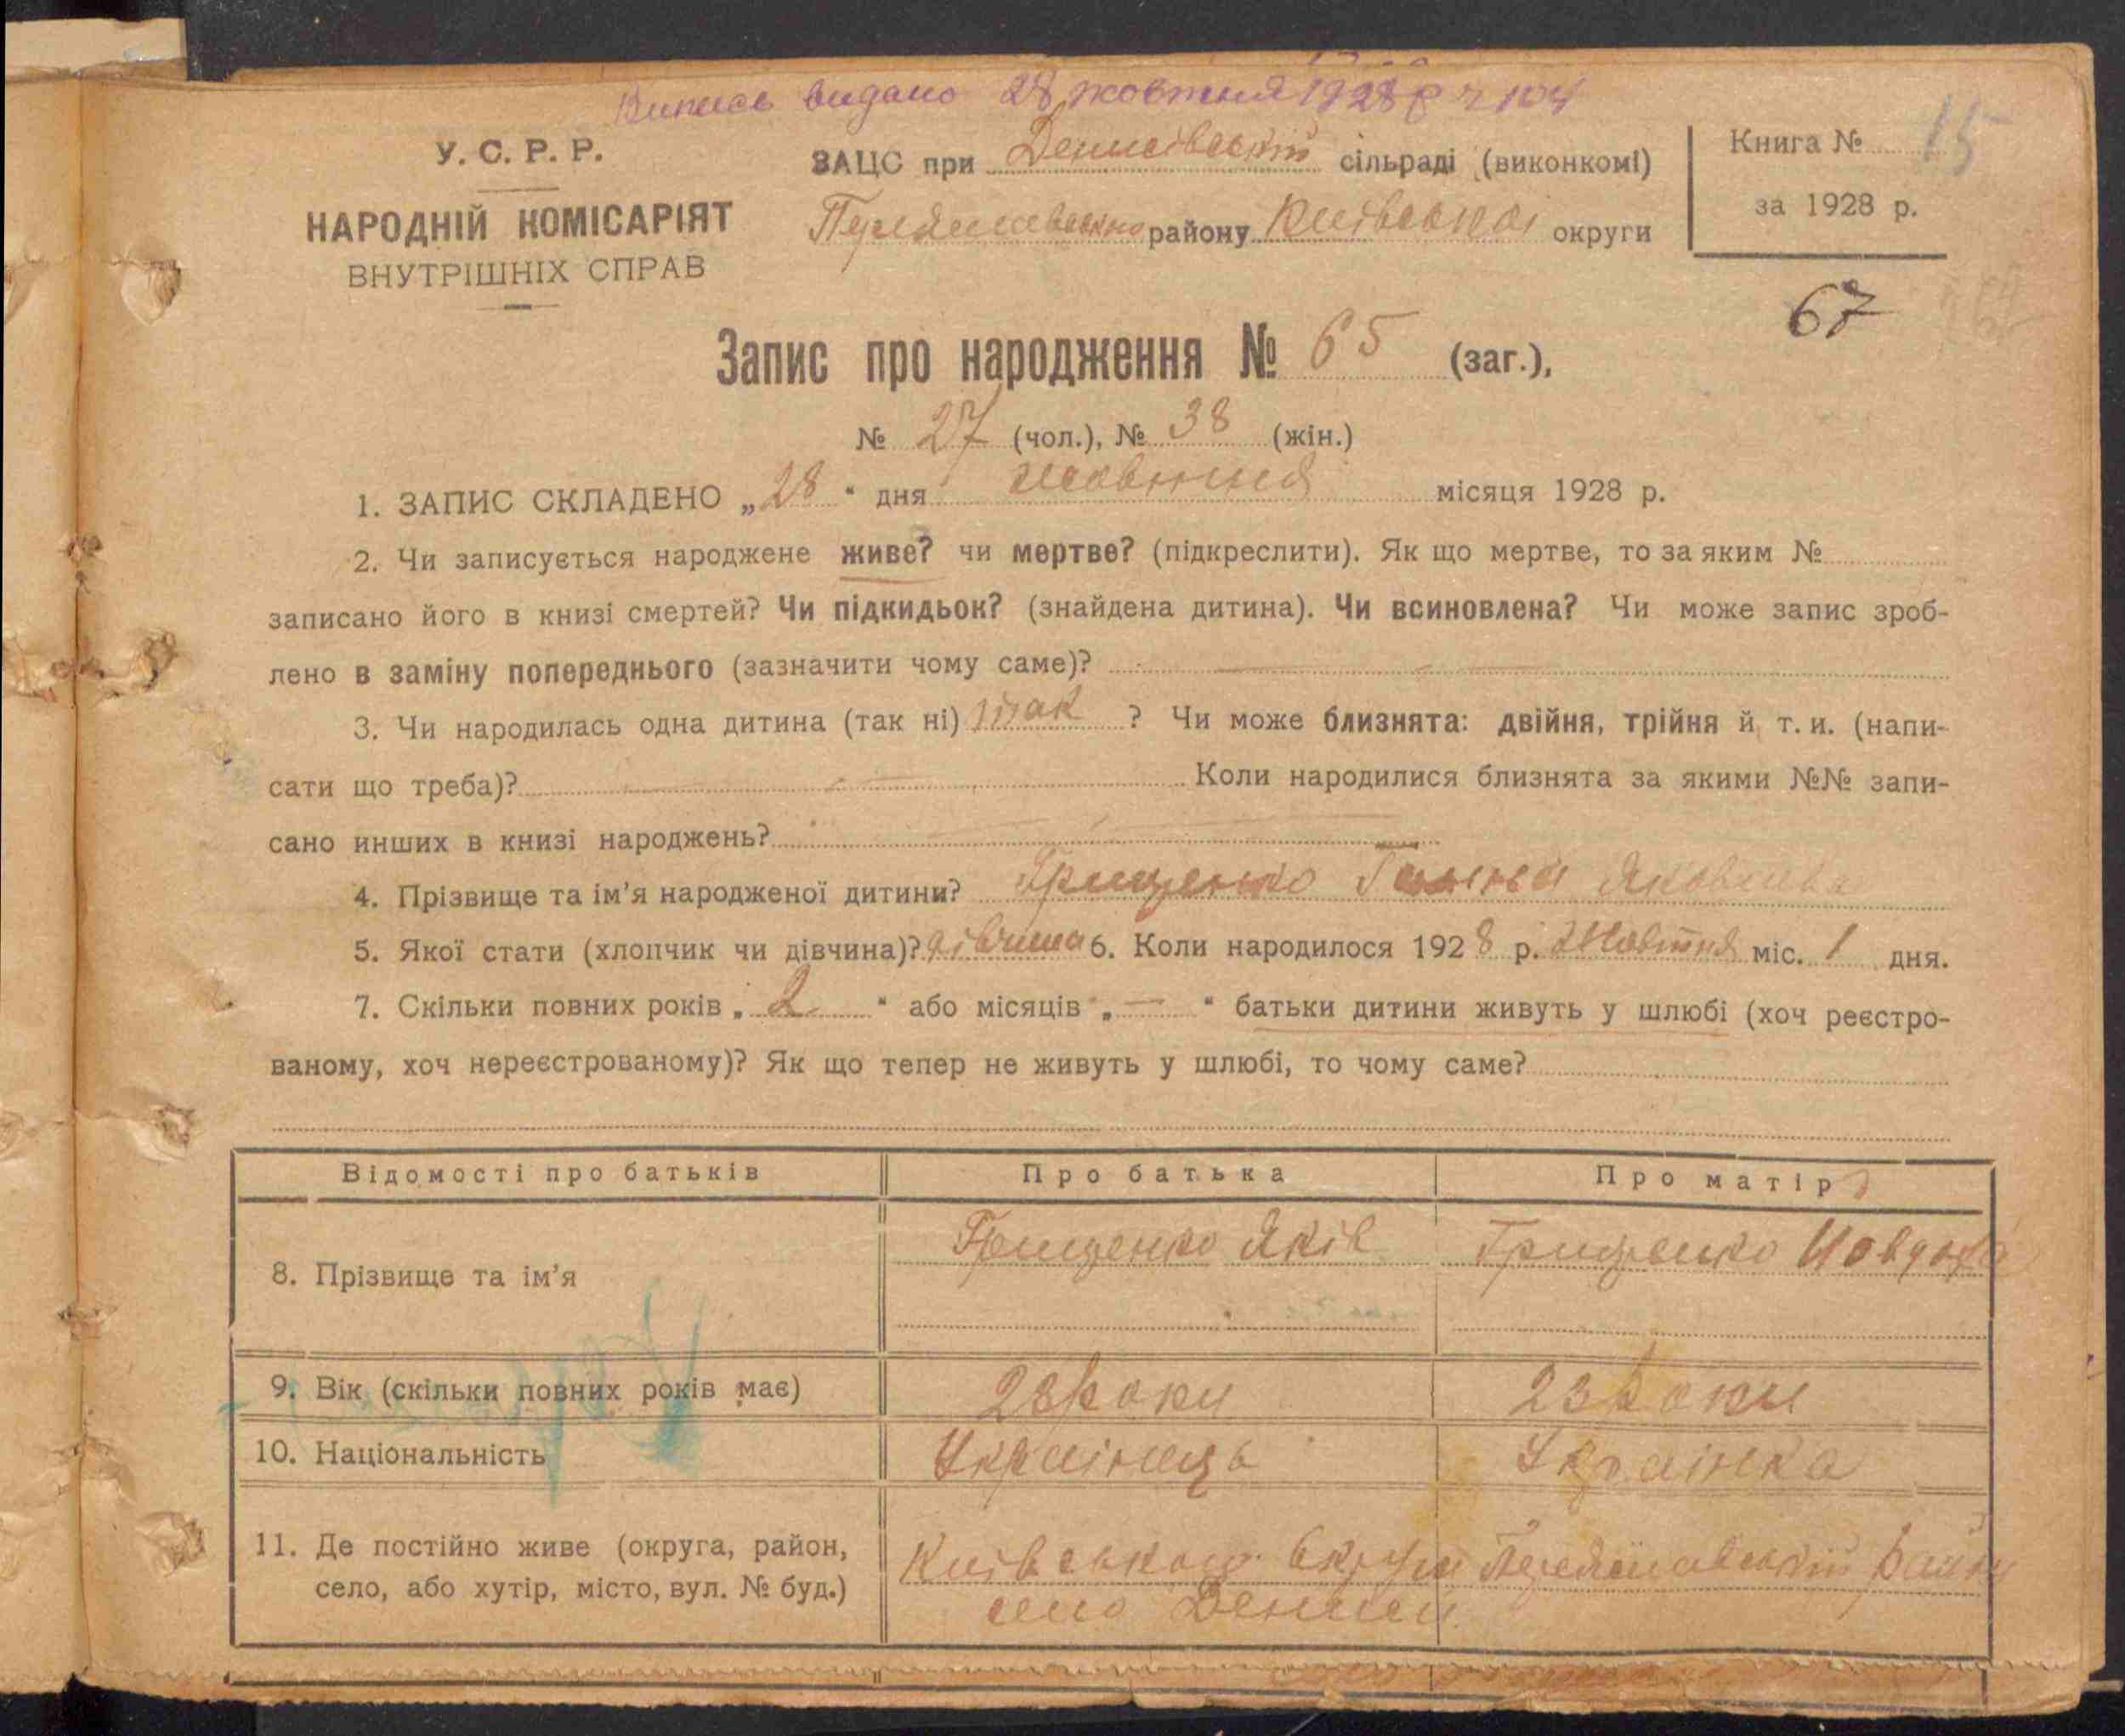 Випись видано 28 жовтня 1928 р ч 104
У. С. Р. Р.
НАРОДНІЙ КОМІСАРІЯТ
ВНУТРІШНІХ СПРАВ
ЗАЦС при Денисівській сільраді (виконкомі)
району Київської округи
Книга № 15
за 1928 р.
67
Запис про народження № 65 (заг.),
№ 27 (чол.), № 38 (жін.)
1. ЗАПИС СКЛАДЕНО „28“ дня жовтня місяця 1928 р.
2. Чи записується народжене живе? чи мертве? (підкреслити). Як що мертве, то за яким №
записано його в книзі смертей? Чи підкидьок? (знайдена дитина). Чи всиновлена? Чи може запис зроб-
лено в заміну попереднього (зазначити чому саме)? —
3. Чи народилась одна дитина (так ні) так ? Чи може близнята: двійня, трійня й т. и. (напи-
сати що треба)? — Коли народилися близнята за якими №№ запи-
сано инших в книзі народжень? —
4. Прізвище та ім'я народженої дитини? Грищенко Ганна Яковлевна
5. Якої стати (хлопчик чи дівчина)? дівчина 6. Коли народилося 1928 р. Жовтня міс. 1 дня.
7. Скільки повних років „ 2 “ або місяців „ — “ батьки дитини живуть у шлюбі (хоч реєстро-
ваному, хоч нереєстрованому)? Як що тепер не живуть у шлюбі, то чому саме?
Відомості про батьків Про батька Про матір
8. Прізвище та ім'я Грищенко Яків Грищенко
9. Вік (скільки повних років має) роки 23 роки
10. Національність Українець Українка
11. Де постійно живе (округа, район,
село, або хутір, місто, вул. № буд.)
село Дениси